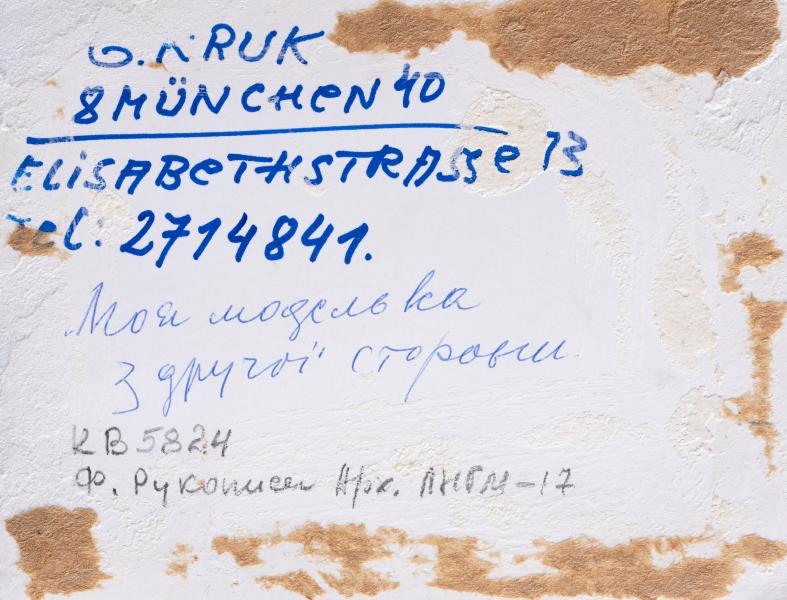 G. KRUK
8 MÜNCHEN 40
ELISABETHSTRASSE 13
Tel: 2714841.
Моя моделька
з другої сторони
КВ 5824
Ф. Рукописи Арх. ЛНГМ-17